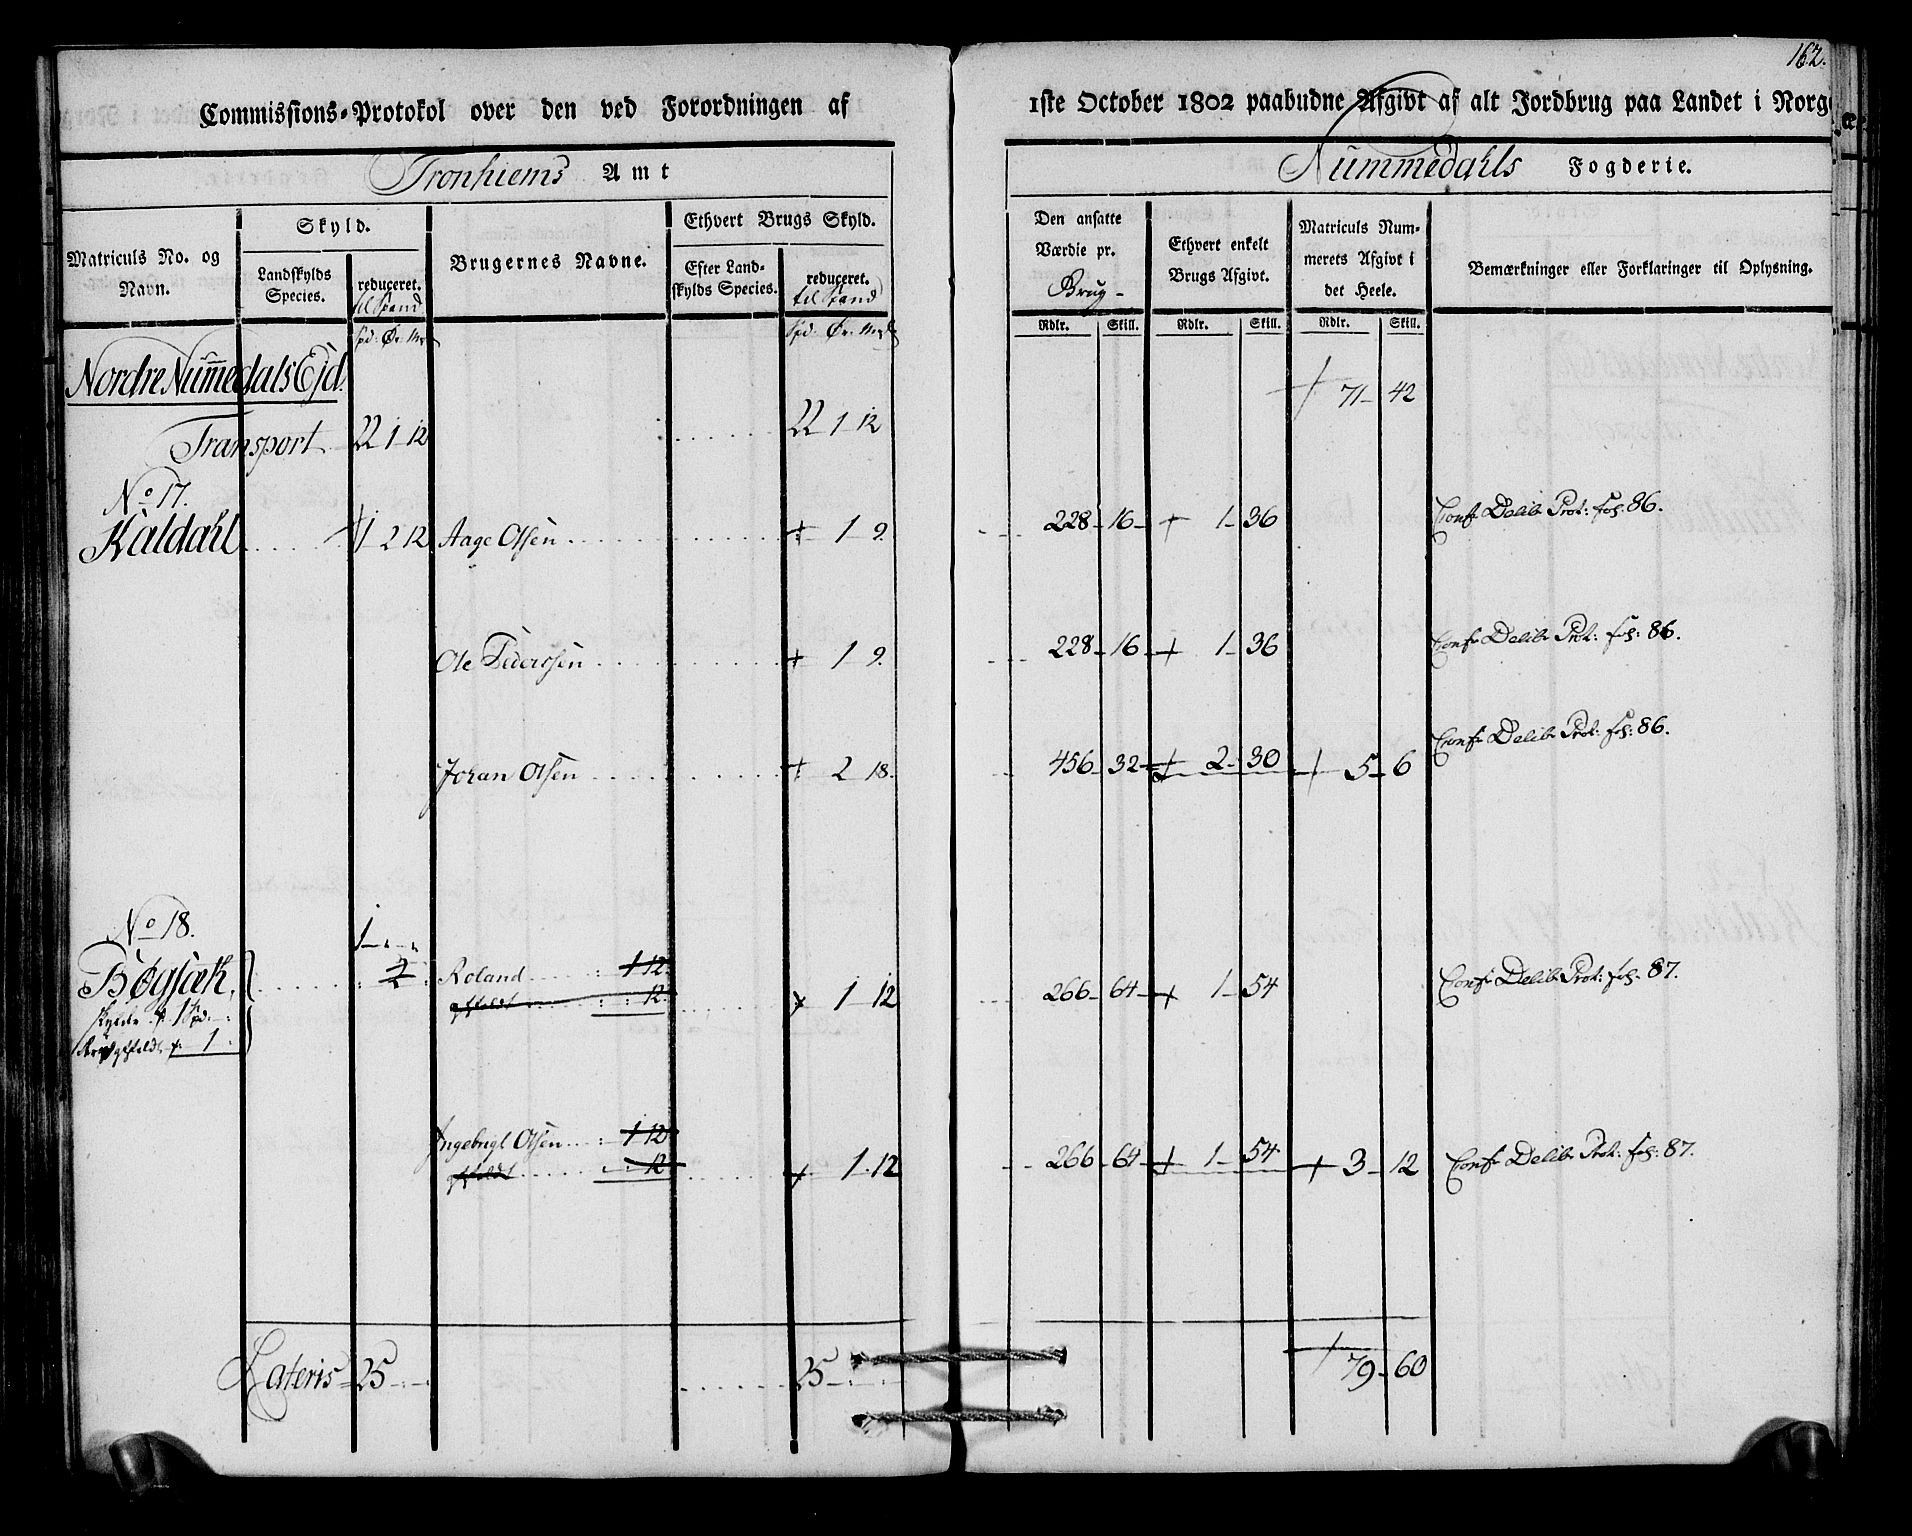 162.
Commissions-Protokol over den ved Forordningen af 1ste October 1802 paabudne Afgivt af alt Jordbrug paa Landet i Norg
Tronhiems Amt
Nummedahls Fogderie.
Matriculs No. og Navn.
Skyld.
Landskylds Species.
reduceret. til Spand
Brugernes Navne.
Ethvert Brugs Skyld.
Efter Landskylds Species.
reduceret. til Spand
Den ansatte Værdie pr. Brug
Ethvert enkelt Brugs Afgivt.
Matriculs Nummerets Afgivt i det Heele.
Bemærkninger eller Forklaringer til Oplysning.
Spd: Ør: Mrk
Spd: Ør: Mrk
Rdlr. Skill. Rdlr. Skill. Rdlr. Skill.
Nordre Nummedals Ejd.
71 - 42
Transport 22 1 12 22 1 12
No 17.
Kaldahl 1 2 12 Aage Olsen + 1 9. 228 - 16 - + 1 - 36 Conf Delib Prot: fol: 86.
Ole Pederssen + 1 9. 228 - 16 - + 1 - 36 Conf Delib Prot: fol: 86.
Johan Olsen + 2 18. 456 - 32 - + 2 - 30 + 5 - 6 Conf Delib Prot: fol: 86.
No 18.
1 - " - "
Bøgsæk, Roland 1 12 + 1 12 266 - 64 - + 1 - 54 Conf Delib Prot: fol: 87.
12
Skylder 1 Spd.
1
Ingebrigt Olsen 1 12
12 + 1 12 266 - 64 - + 1 - 54 + 3 - 12 Conf Delib Prot: fol: 87.
Lateris 25 25 79 - 60